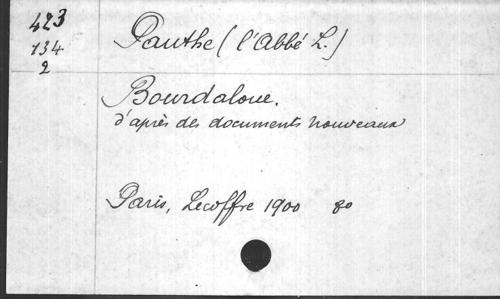 423
134
2
Pauthe (l'Abbé L.)
Bourdaloue.
d'après des documents nouveaux
Paris, Lecoffre 1900 80